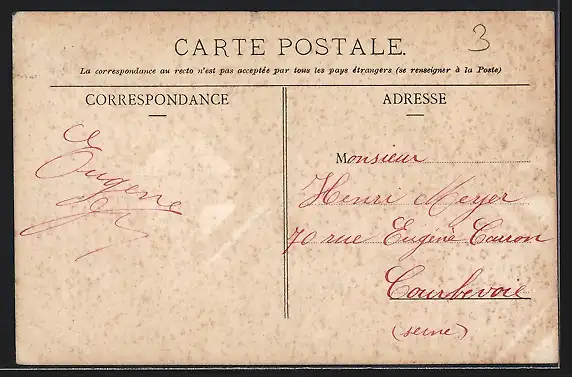 3
CARTE POSTALE.
La correspondance au recto n'est pas acceptée par tous les pays étrangers (se renseigner à la Poste)
CORRESPONDANCE
Eugene
ADRESSE
Monsieur
Henri Meyer
70 rue Eugéne Caron
Courbevoie
(seine)